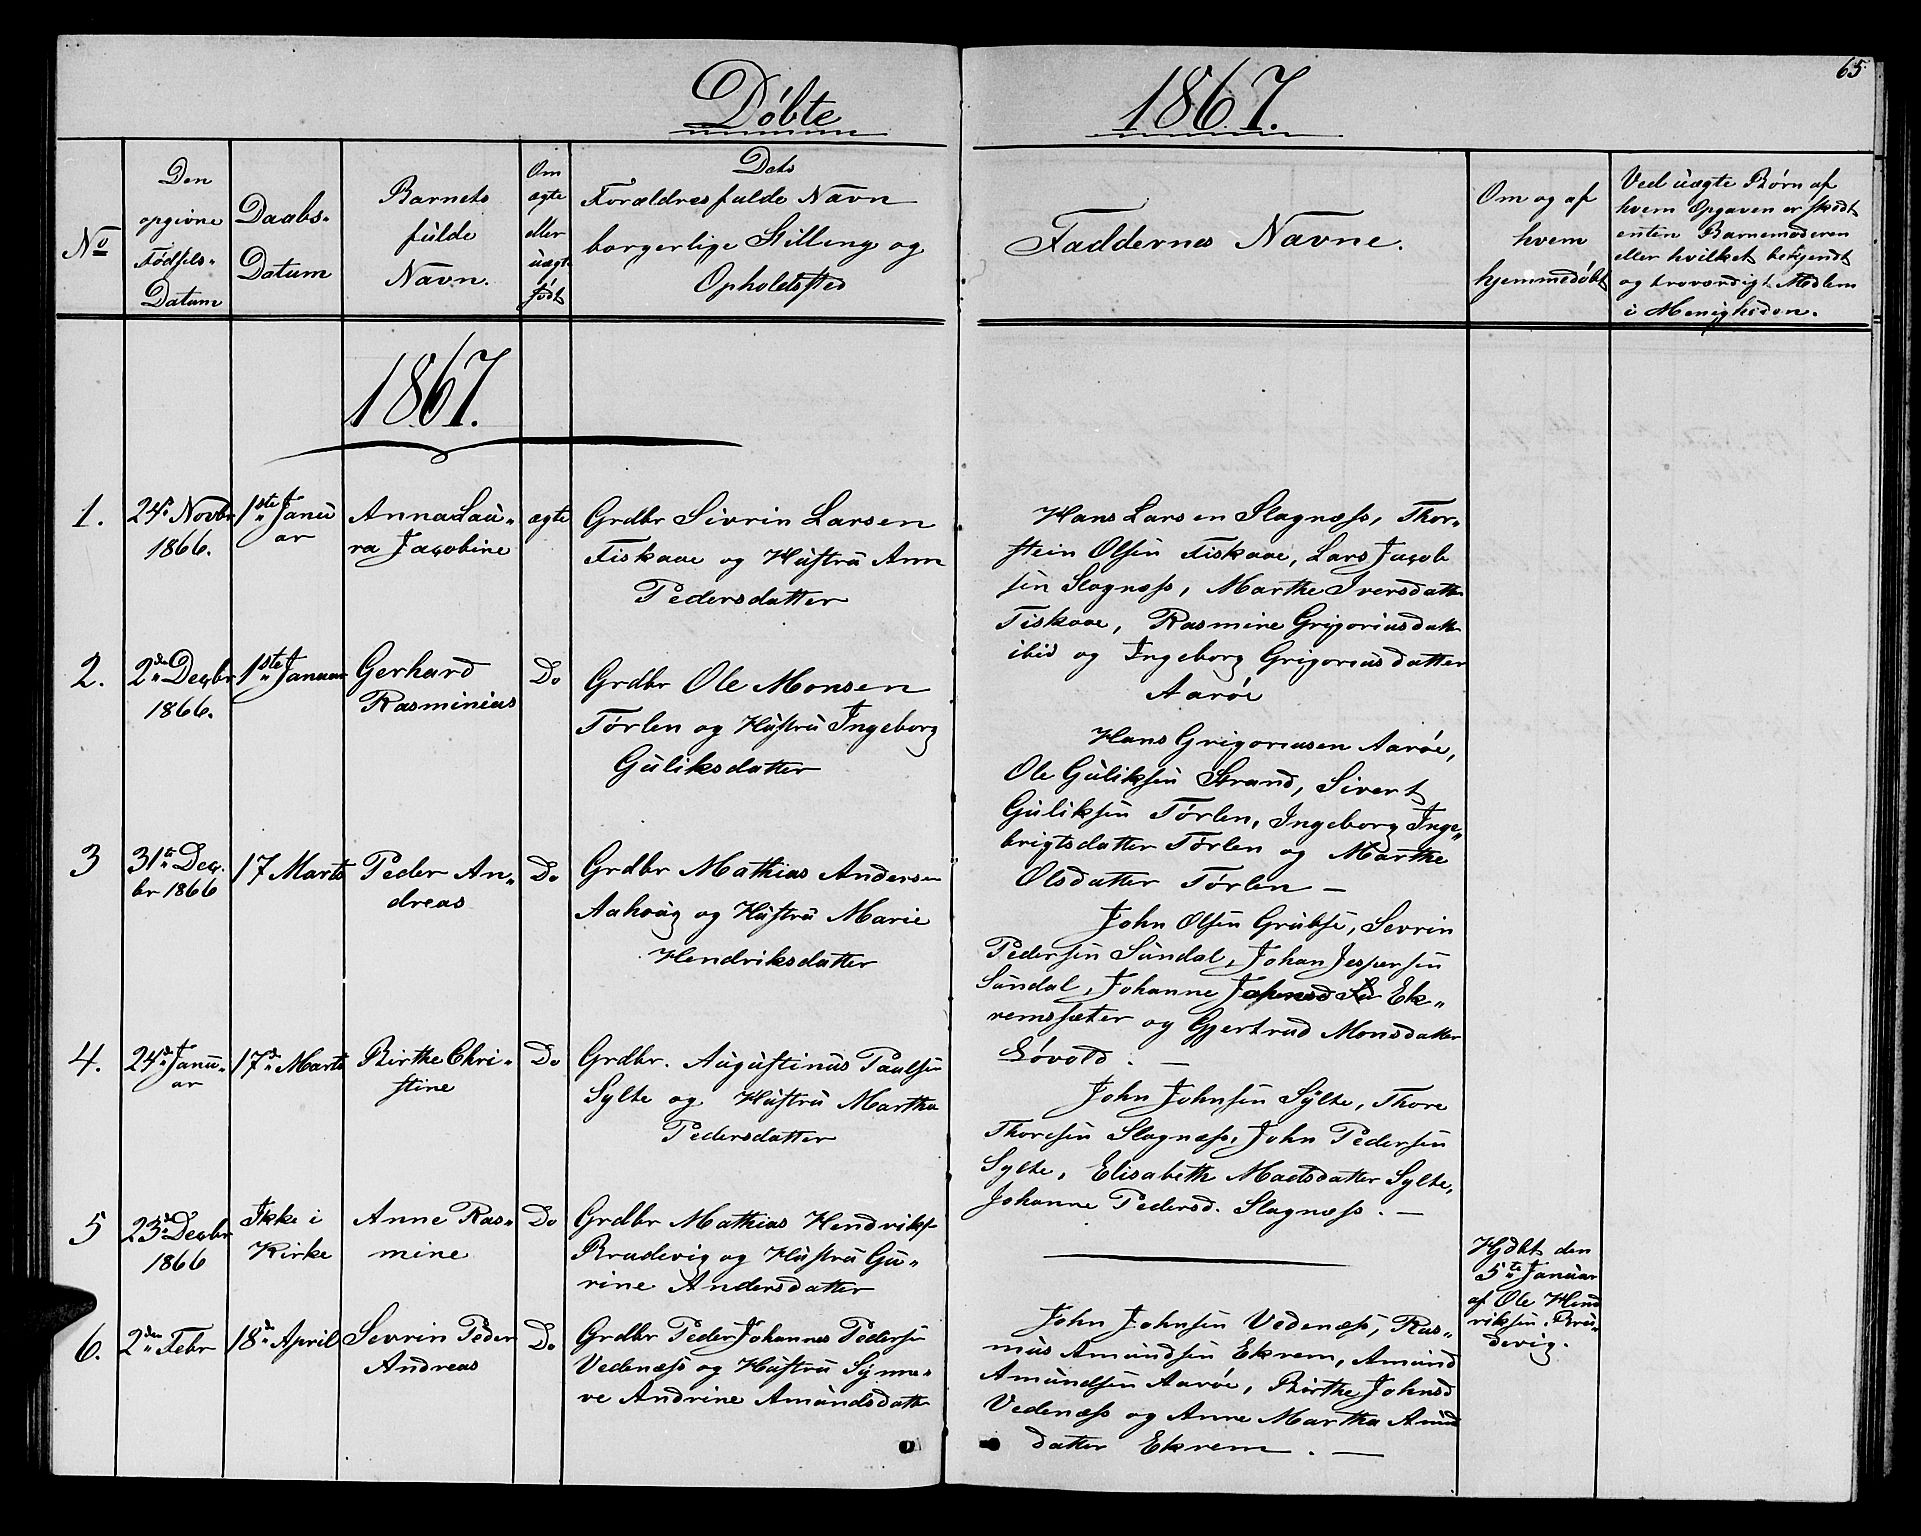 65
Døbte
1867.
No
Den
opgivne
Fødsels-
Datum
Daabs-
Datum
Barnets
fulde
Navn.
Om
ægte
eller
uægte
født
Dets
Forældres fulde Navn
borgerlige Stilling og
Opholdssted
Faddernes Navne.
Om og af
hvem
hjemmedøbt
Ved uægte Børn af
hvem Opgaven er skeedt
enten Barnemoderen
eller hvilket bekjendt
og troværdigt Medlem
i Menigheden.
1867.
1.
24. Novbr
1866.
1ste Janu
ar
Anna Lau-
ra Jacobine
ægte
Grdbr Sivrin Larsen
Fiskaae og Hustru Ann
Pedersdatter
Hans Larsen Slagnæss, Thor-
stein Olsen Fiskaae, Lars Jacob
sen Slagnæss, Marthe Iversdatter
Fiskaae, Rasmine Grigoriusdatt
ibid og Ingeborg Grigoriusdatter
Aarøe
2.
2den Decbr
1866.
1ste Januar
Gerhard
Rasminius
Do
Grdbr Ole Monsen
Tørlen og Hustru Ingeborg
Guliksdatter
Hans Grigoriusen Aarøe,
Ole Guliksen Strand, Sivert
Guliksen Tørlen, Ingeborg Inge-
brigtsdatter Tørlen og Marthe
Olsdatter Tørlen —
3
31te Dec.
br 1866
17 Marts
Peder An-
dreas
Do
Grdbr Mathias Andersen
Aahaug og Hustru Marie
Hendriksdatter
John Olsen Grubse, Sevrin
Pedersen Sundal, Johan Jespersen
Sundal, Johanne Ek-
remssæter og Gjertrud Monsdatter
Løvold. —
4.
24de Janu-
ar
17de Marts
Birthe Chri-
stine
Do
Grdbr. Augustinus Paulsen
Sylte og Hustru Martha
Pedersdatter
John Johnsen Sylte, Thore
Thoresen Slagnæss, John Pedersen
Sylte, Elisabeth Madsdatter Sylte,
Johanne Pedersd. Slagnæss. —
5
23de Decbr
1866
Ikke i
Kirke
Anne Ras-
mine
Do
Grdbr Mathias Hendriks
Brudevig og Hustru Gu-
rine Andersdatter
Hjdbt den
5te Januar
af Ole Hend
riksen Bru-
devig.
6.
2den Febr
18de April
Sevrin Peder
Andreas
Do
Grdbr Peder Johannes Pedersen
Vedenæss og Hustru Synne-
ve Andrine Amundsdatt
John Johnsen Vedenæss, Ras-
mus Amundsen Ekrem, Amund
Amundsen Aarøe, Birthe Johnsd
Vedenæss og Anne Martha Amd
datter Ekrem. —